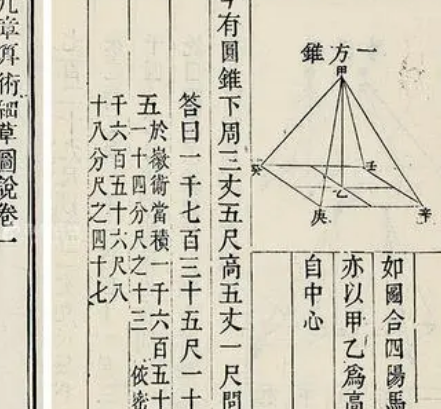 一方錐
甲
癸
壬
乙
庚
辛
如圖合四陽馬
亦以甲乙爲高
自中心
有圓錐下周三丈五尺高五丈一尺問
答曰一千七百三十五尺一十
五
於徽術當積一千六百五十
一十四分尺之十三 依密
千六百五十六尺八
十八分尺之四十七
九章算術細草圖說卷一